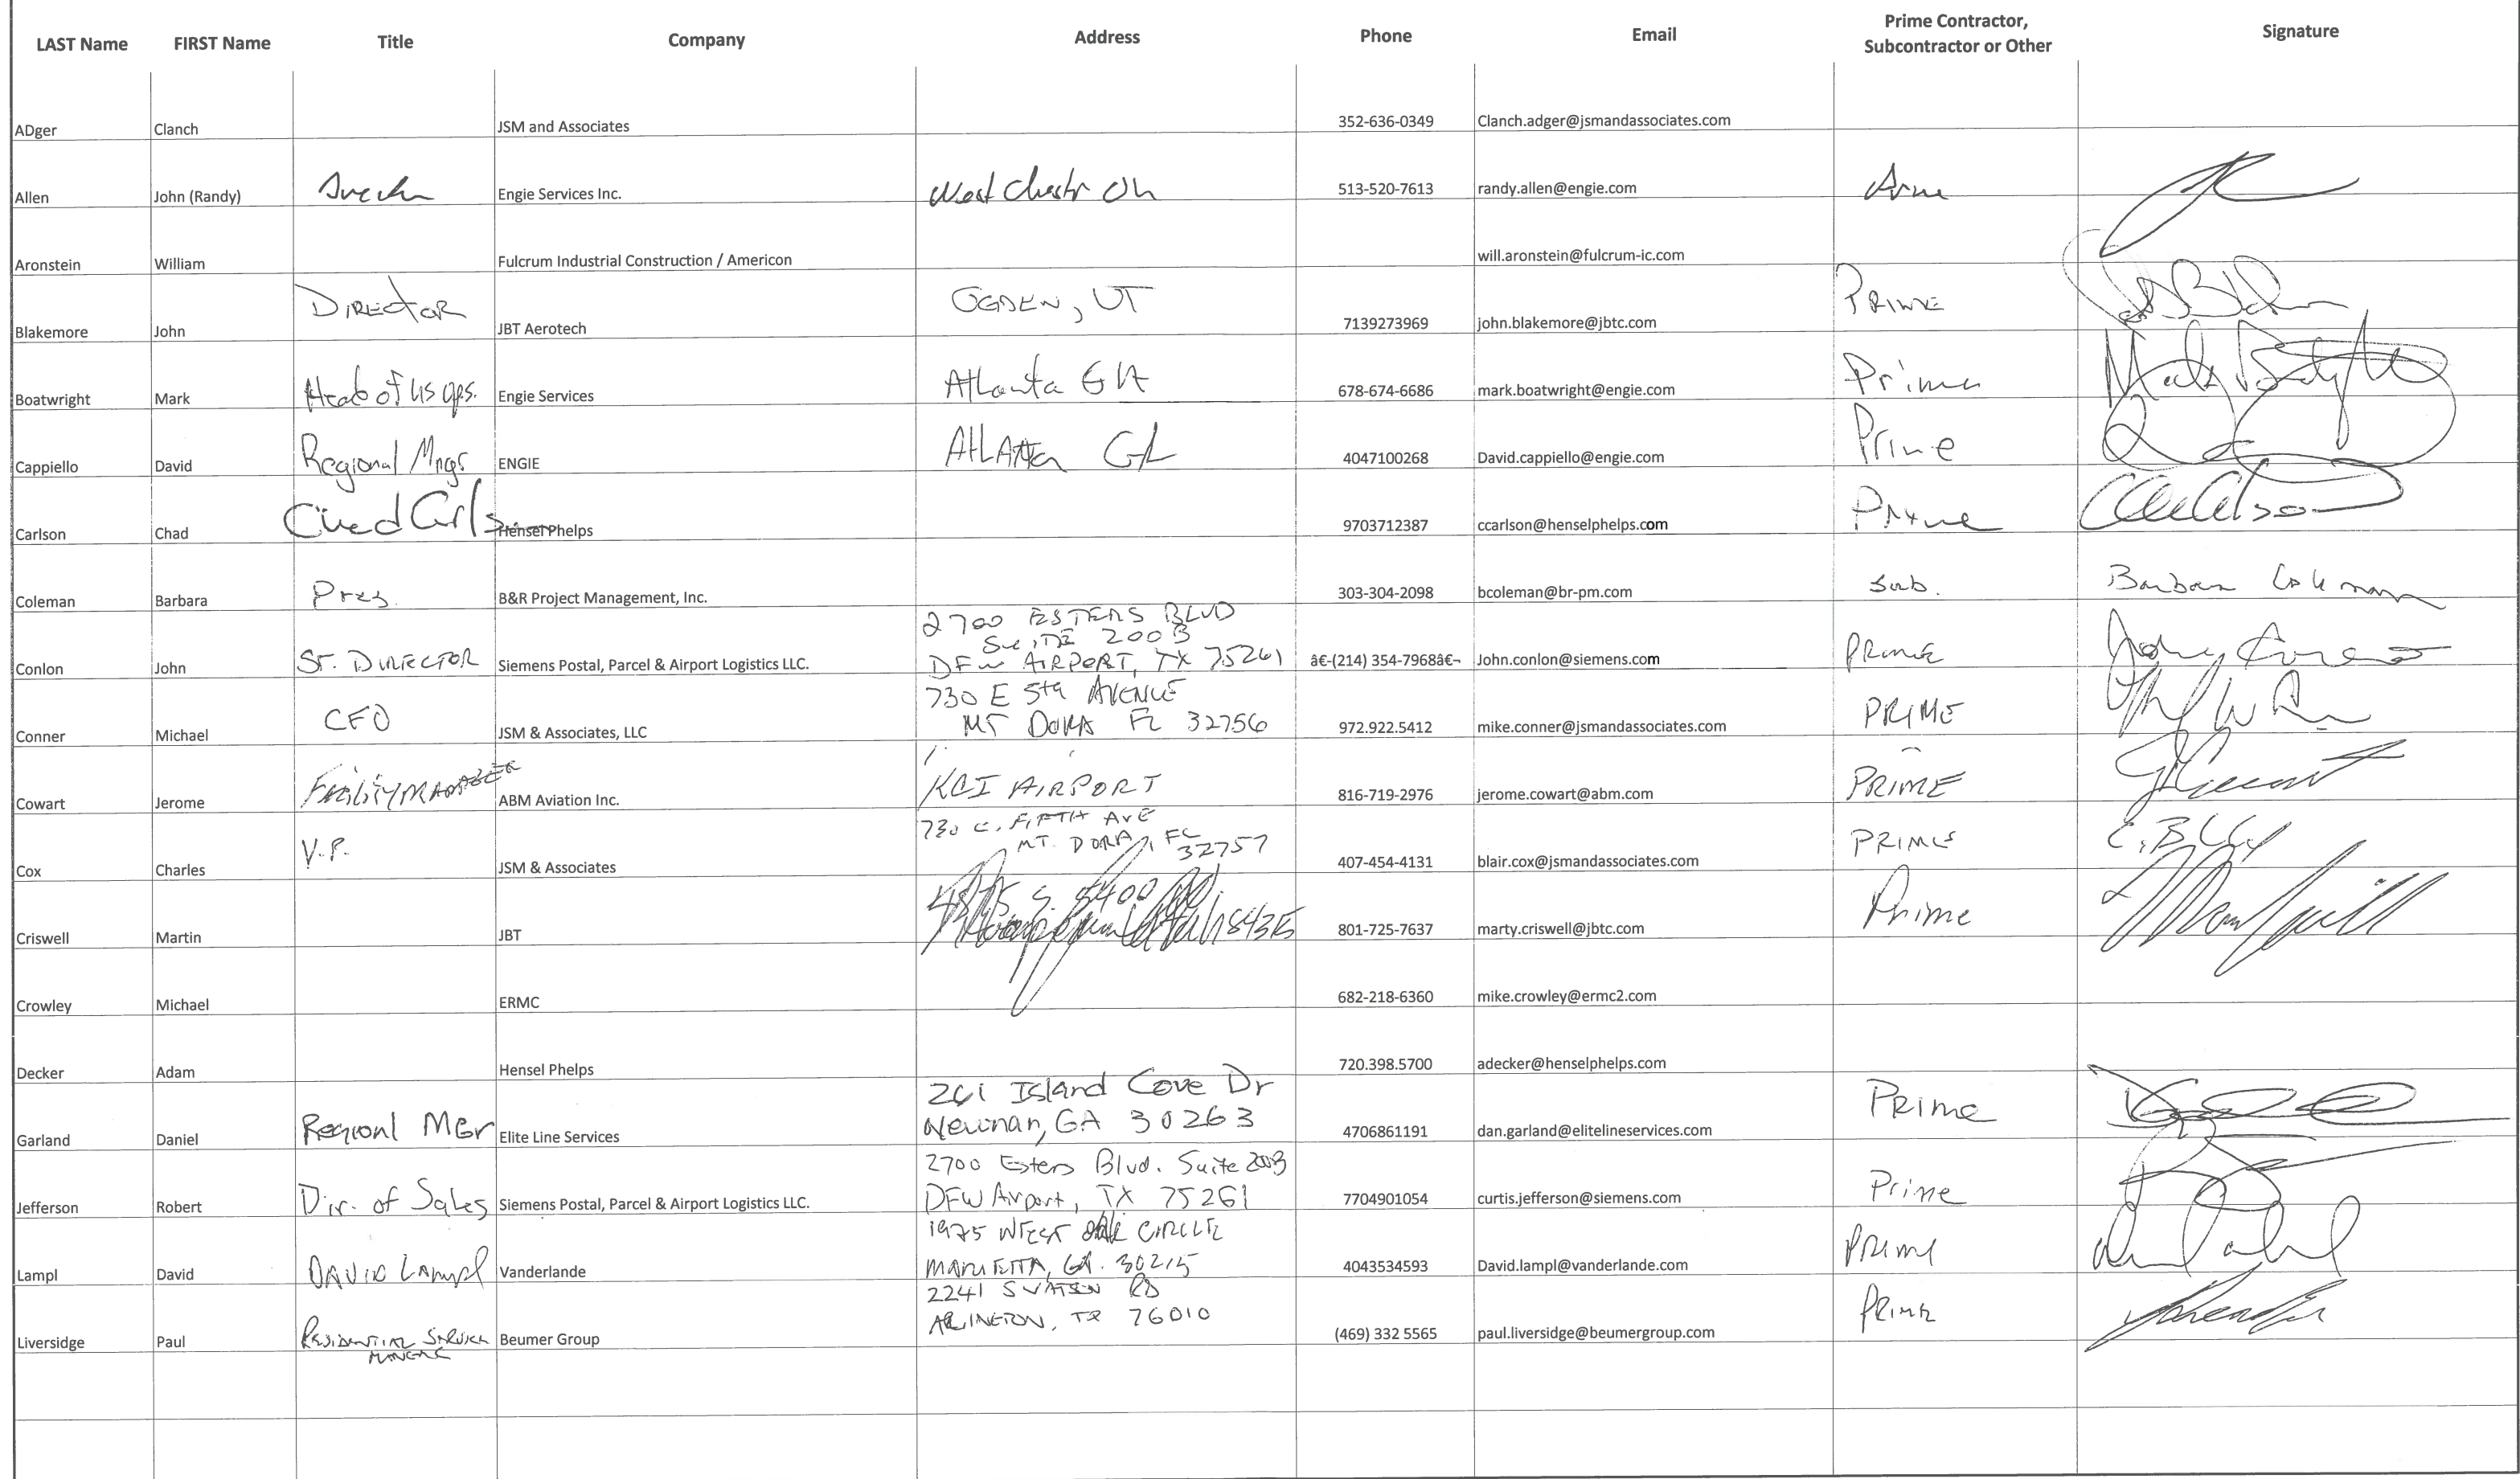 LAST Name FIRST Name Title Company Address Phone Email Prime Contractor, Subcontractor or Other Signature
ADger Clanch JSM and Associates 352-636-0349 Clanch.adger@jsmandassociates.com
Allen John (Randy) Engie Services Inc. West Chestr Oh 513-520-7613 randy.allen@engie.com
Aronstein William Fulcrum Industrial Construction / Americon will.aronstein@fulcrum-ic.com
Blakemore John DIRECTOR JBT Aerotech OGDEN, UT 7139273969 john.blakemore@jbtc.com PRIME
Boatwright Mark Head of US ops. Engie Services Atlanta GA 678-674-6686 mark.boatwright@engie.com Prime Mark Boatwright
Cappiello David Regional Mngr ENGIE Atlanta GA 4047100268 David.cappiello@engie.com Prime
Carlson Chad Hensel Phelps 9703712387 ccarlson@henselphelps.com Prime
Coleman Barbara Pres. B&R Project Management, Inc. 303-304-2098 bcoleman@br-pm.com Sub. Barbara Coleman
2700 ESTERS BLVD
SUITE 200B
Conlon John Sr. DIRECTOR Siemens Postal, Parcel & Airport Logistics LLC. DFW AIRPORT, TX 75261 â€-(214) 354-7968â€¬ John.conlon@siemens.com PRIME
730 E 5th AVENUE
Conner Michael CFO JSM & Associates, LLC MT DORA FL 32756 972.922.5412 mike.conner@jsmandassociates.com PRIME
Cowart Jerome FACILITY MANAGER ABM Aviation Inc. KCI AIRPORT 816-719-2976 jerome.cowart@abm.com PRIME
730 E. FIFTH AVE
Cox Charles V.P. JSM & Associates MT. DORA, FL 32757 407-454-4131 blair.cox@jsmandassociates.com PRIME
Criswell Martin JBT 801-725-7637 marty.criswell@jbtc.com Prime
Crowley Michael ERMC 682-218-6360 mike.crowley@ermc2.com
Decker Adam Hensel Phelps 720.398.5700 adecker@henselphelps.com
261 Island Cove Dr
Garland Daniel Regionl MGr Elite Line Services Newnan, GA 30263 4706861191 dan.garland@elitelineservices.com Prime
2700 Esters Blvd. Suite 200B
Jefferson Robert Dir. of Sales Siemens Postal, Parcel & Airport Logistics LLC. DFW Airport, TX 75261 7704901054 curtis.jefferson@siemens.com Prime
1975 WEST OAK CIRCLE
Lampl David DAVID Lampl Vanderlande MARIETTA, GA. 30215 4043534593 David.lampl@vanderlande.com PRIME
2241 RD
Liversidge Paul RESIDENTIAL SERVICE MANAGER Beumer Group ARLINGTON, TX 76010 (469) 332 5565 paul.liversidge@beumergroup.com PRIME